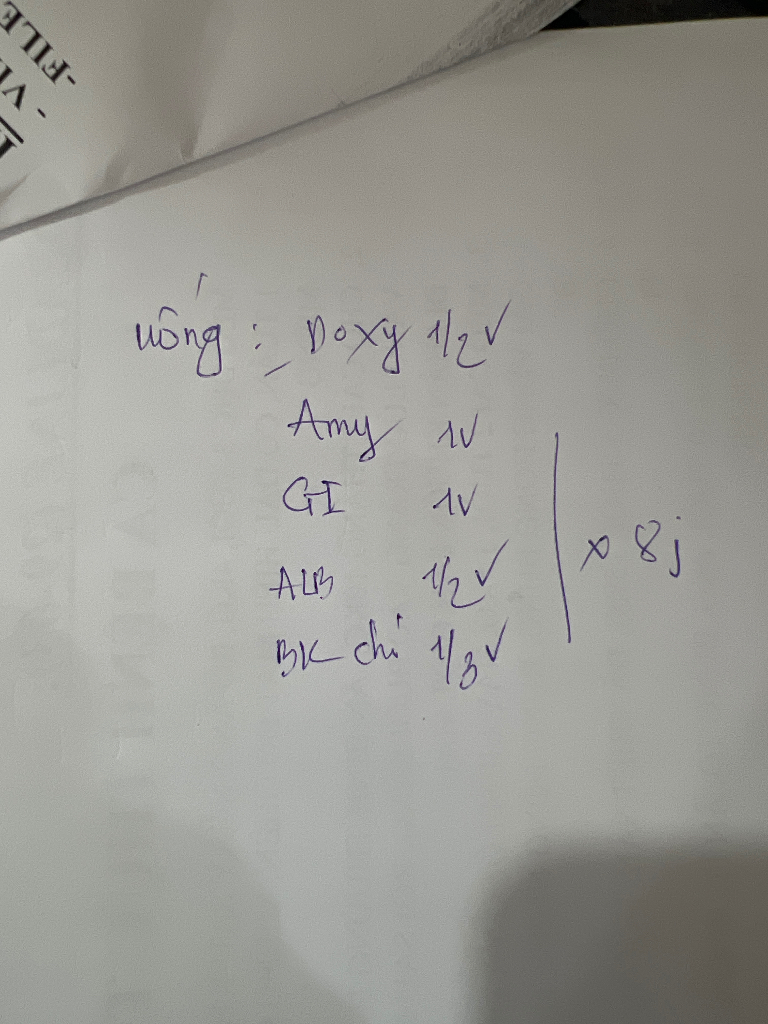 -FILE
- VI
uống : - Doxy 1/2 v
Amy 1v
GI 1v
ALB 1/2 v
BK chỉ 1/3 v
x 8j